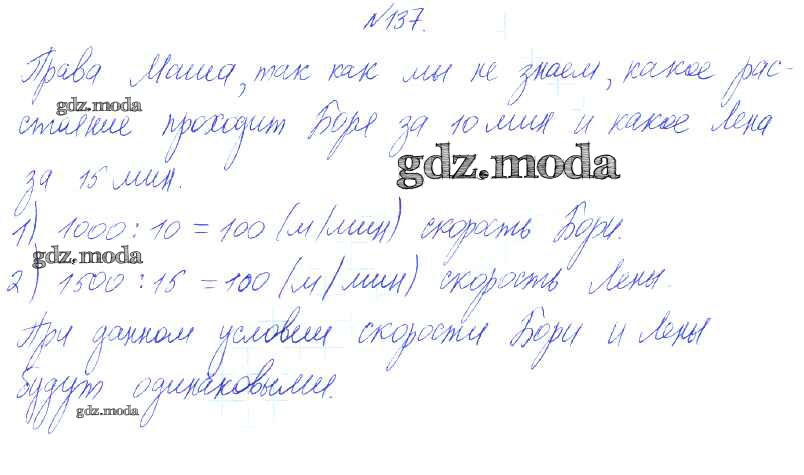 №137.
Права Маша, так как мы не знаем, какое рас-
gdz.moda
стояние проходит Боря за 10 мин и какое Лена
gdz.moda
за 15 мин.
1) 1000 : 10 = 100 (м/мин) скорость Бори.
gdz.moda
2) 1500 : 15 = 100 (м/мин) скорость Лены.
При данном условии скорости Бори и Лены
будут одинаковыми.
gdz.moda